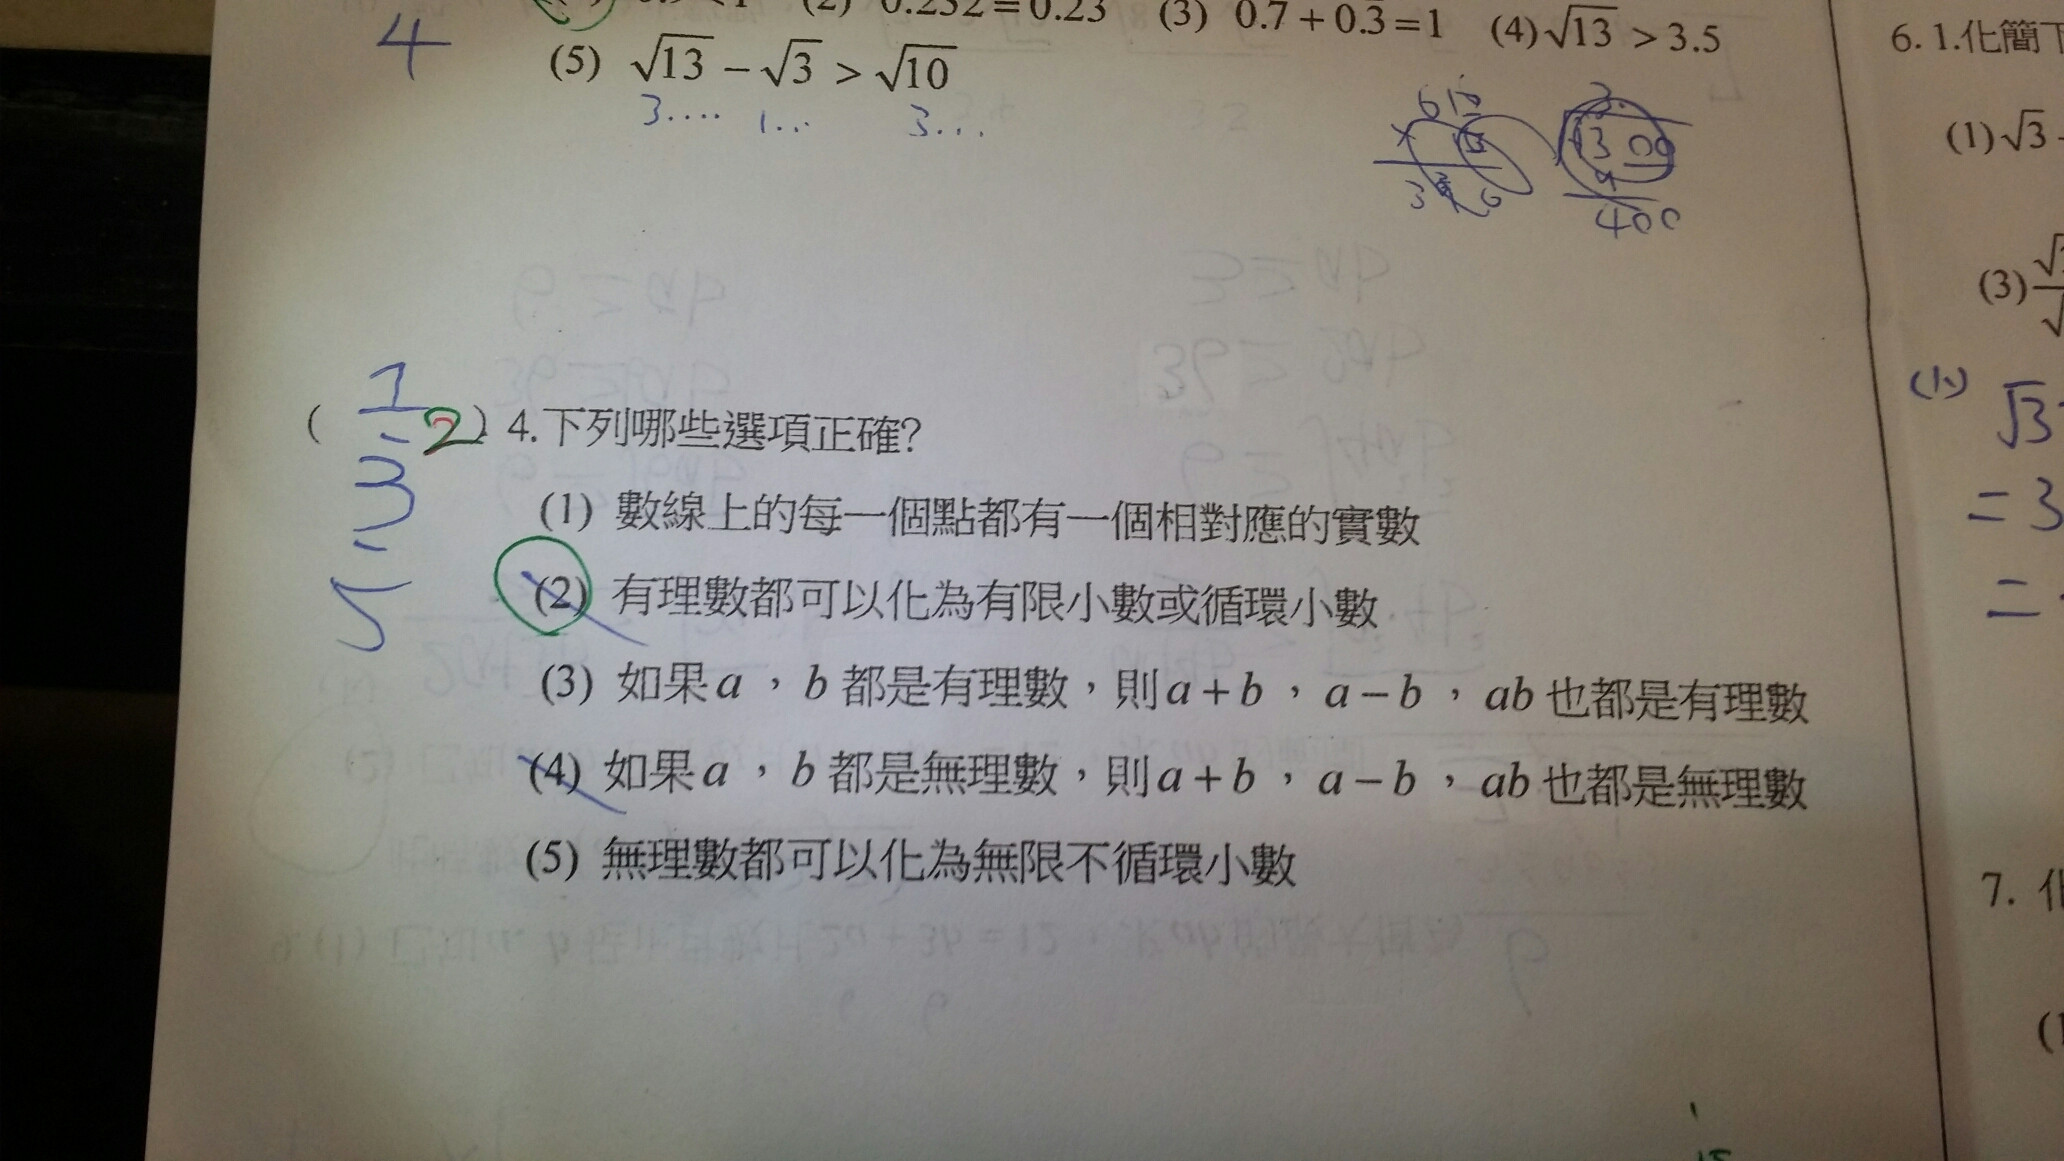 (2) 0.232 = 0.23 (3) 0.7 + 0.3̅ = 1 (4) √13 > 3.5
4
(5) √13 − √3 > √10
3.... 1... 3...
3.
13 00
400
1
2
3
5
( ) 4.下列哪些選項正確?
(1) 數線上的每一個點都有一個相對應的實數
(2) 有理數都可以化為有限小數或循環小數
(3) 如果a，b 都是有理數，則a+b，a−b，ab 也都是有理數
(4) 如果a，b 都是無理數，則a+b，a−b，ab 也都是無理數
(5) 無理數都可以化為無限不循環小數
6. 1.化簡下
(1) √3
(3)
(1)
√3
= 3
=
7. 化